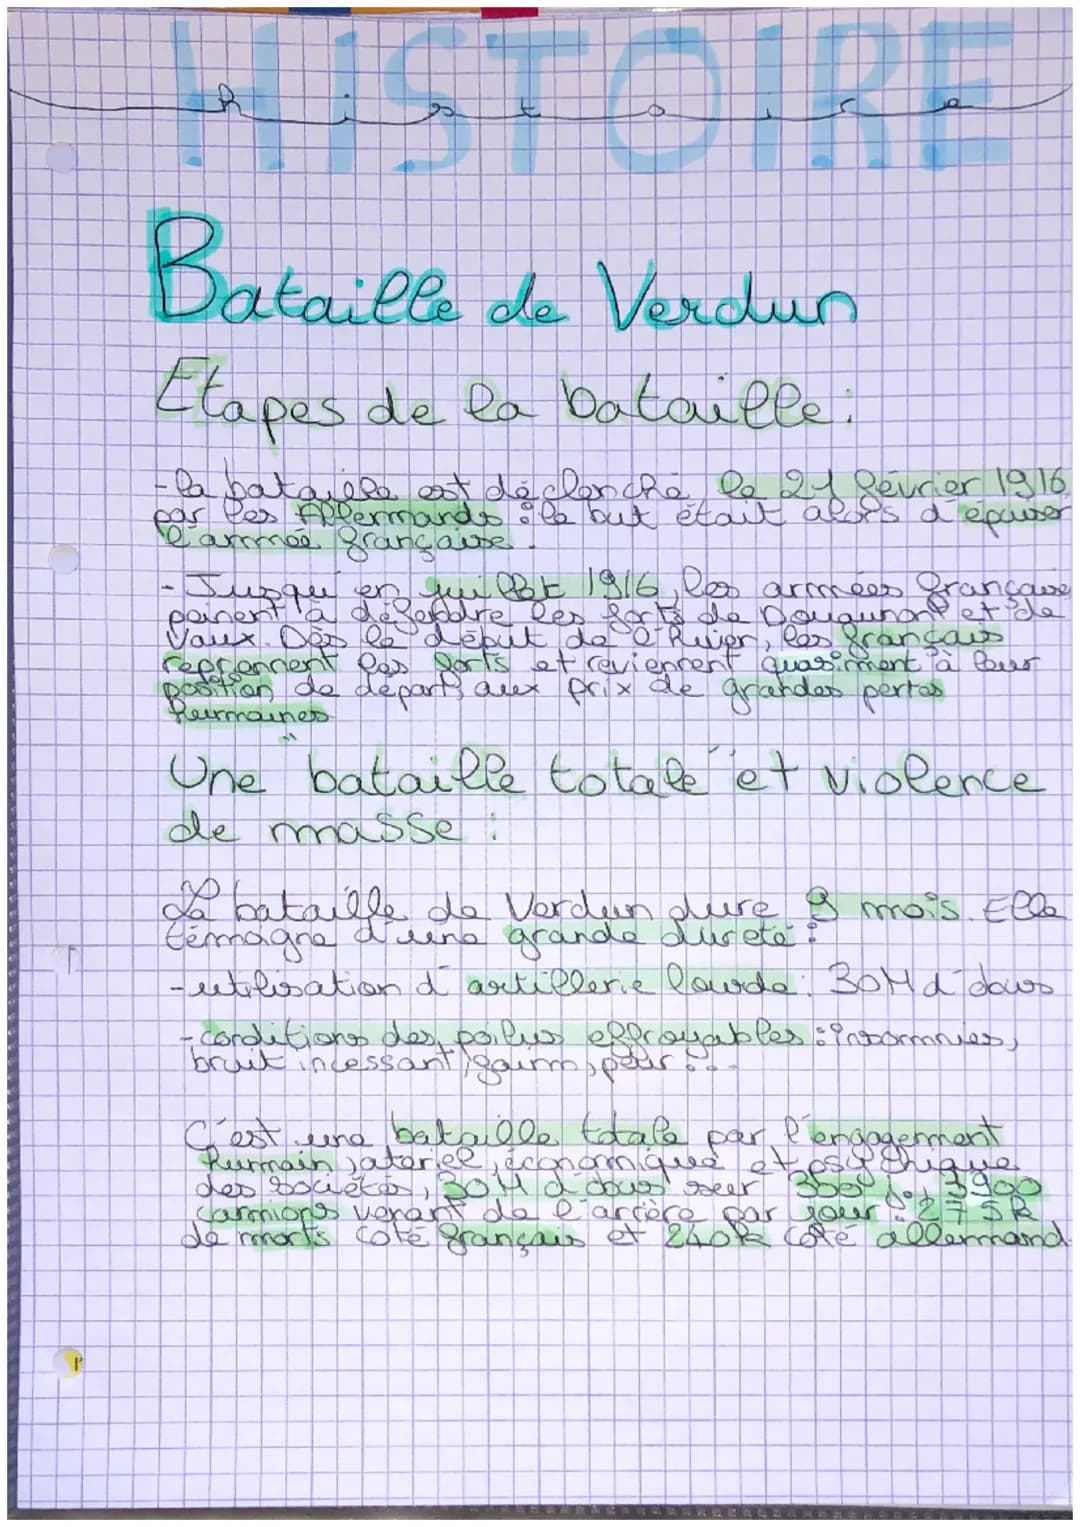 HISTOIRE
Histoire
Bataille de Verdun
Etapes de la bataille :
- la bataille est déclenché le 21 février 1916
par les Allermands : le but était alors d'épuiser
l'armée française.
- Jusqu'en juillet 1916, les armées française
peinent à défendre les forts de Douaumont et de
Vaux. Dès le début de l'hiver, les français
reprennent les forts et reviennent quasiment à leur
position de départ, aux prix de grandes pertes
humaines
Une bataille totale et violence
de masse :
La bataille de Verdun dure 9 mois. Elle
témoigne d'une grande dureté :
- utilisation d'artillerie lourde : 30M d'obus
- conditions des poilus effroyables : insomnies,
bruit incessant, faim, peur...
C'est une bataille totale par l'engagement
humain, économique et psychique
des sociétés, 30M d'obus sur 300 j. 3900
camions venant de l'arrière par jour. 275k
de morts côté français et 240k côté allemand